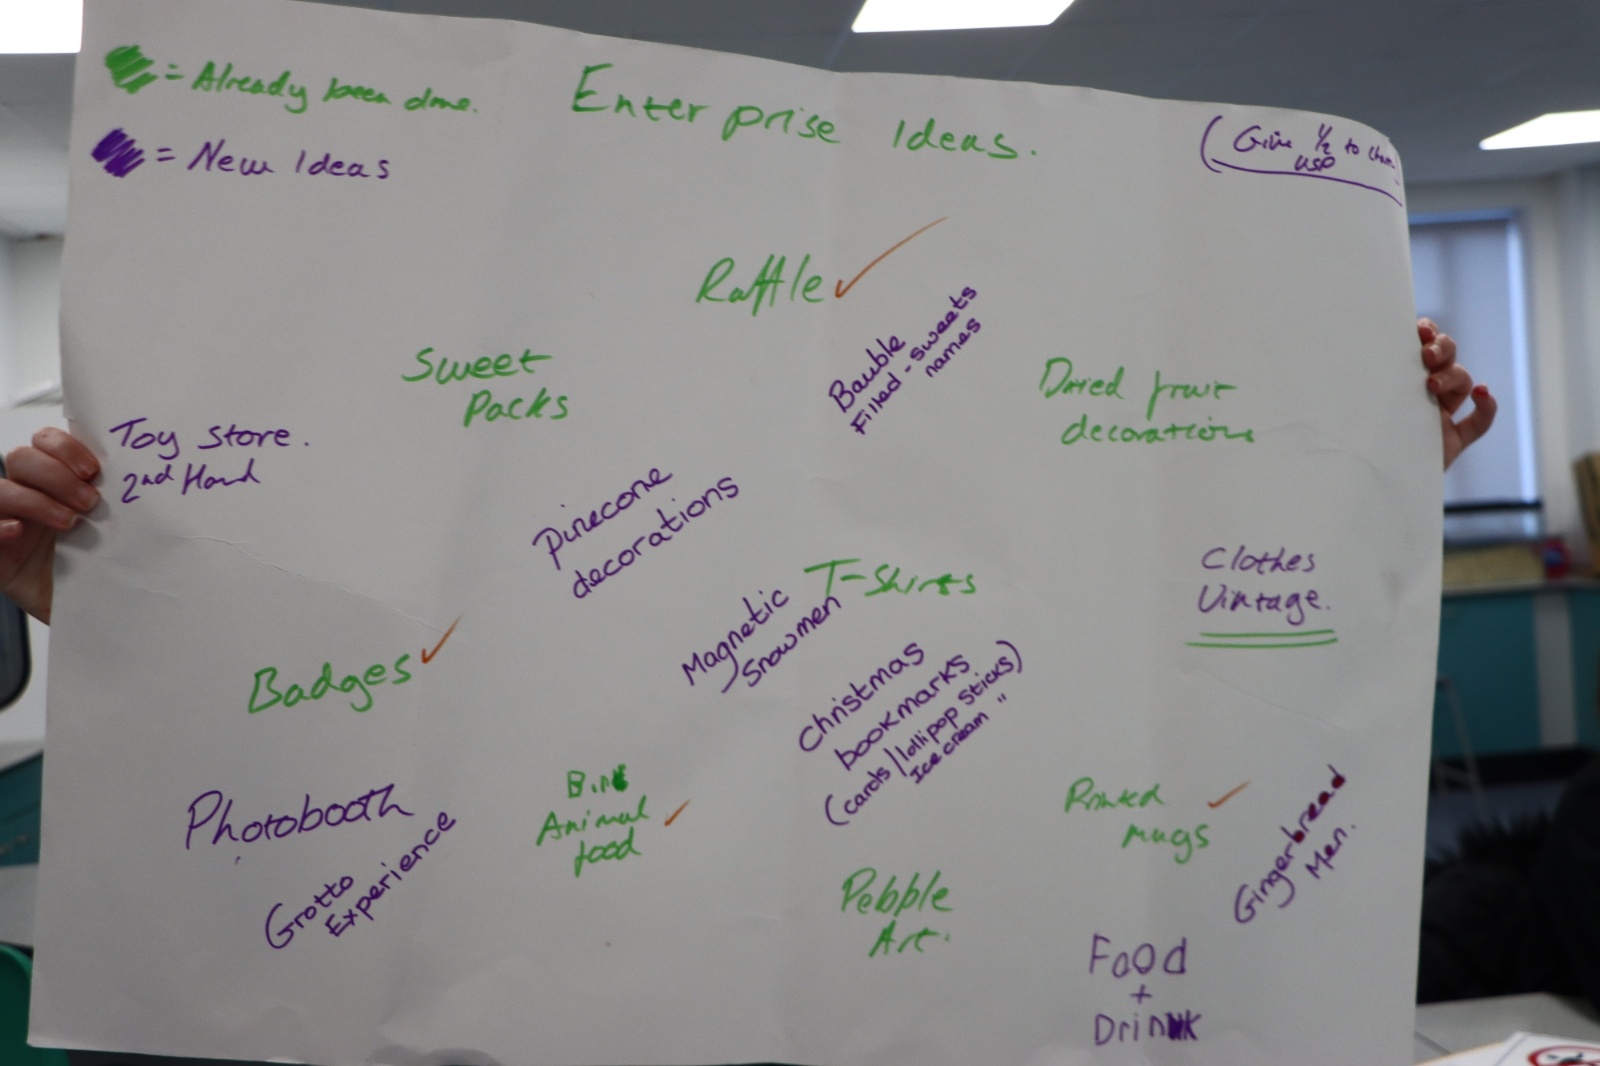 = Already been done.
= New Ideas
Enterprise Ideas.
(Give 1/2 to
USP
Raffle ✓
Sweet
Packs
Bauble
Filled - sweets
names
Dried fruit
decorations
Toy Store.
2nd Hand
Pinecone
decorations
T-Shirts
Magnetic
Snowmen
Clothes
Vintage.
Christmas
bookmarks
(cards/lollipop sticks)
Ice cream "
Badges ✓
Photobooth
Grotto
Experience
Animal ✓
food
Printed ✓
mugs
Gingerbread
Men.
Pebble
Art.
Food
+
Drink